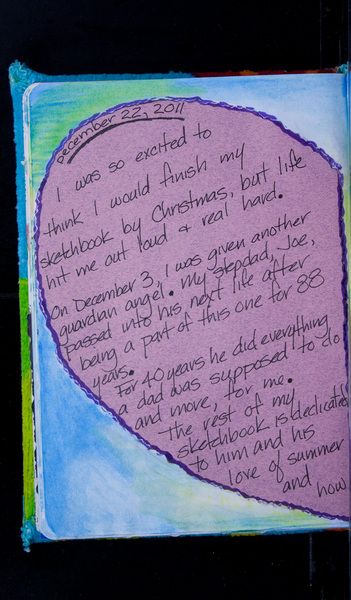 December 22, 2011
I was so excited to
think I would finish my
sketchbook by Christmas, but life
hit me out loud & real hard.
On December 3, I was given another
guardian angel. My stepdad, Joe,
passed into his next life after
being a part of this one for 88
years.
For 40 years he did everything
a dad was supposed to do
and more, for me.
The rest of my
sketchbook is dedicated
to him and his
love of summer
and how